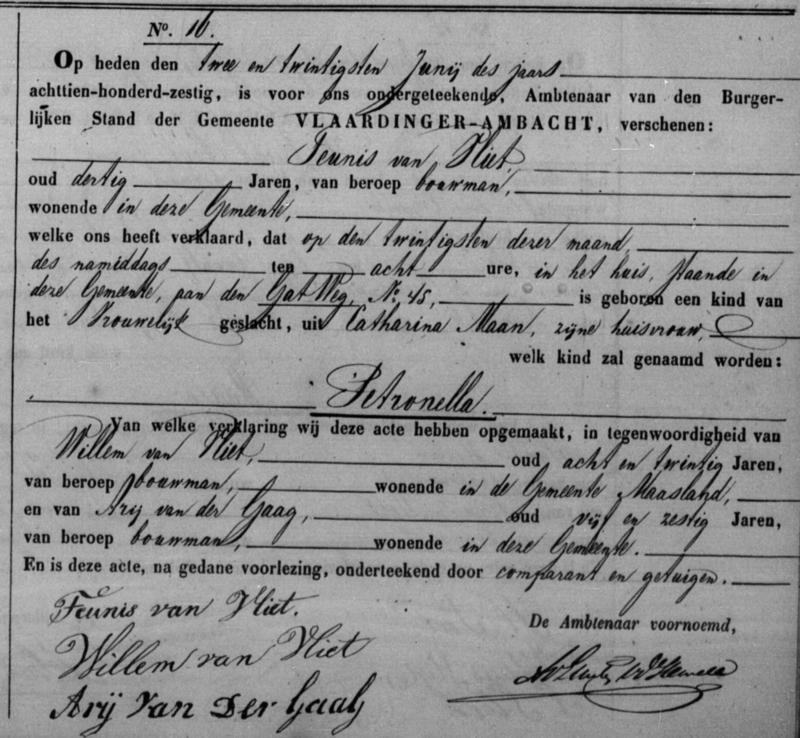 No. 16.
Op heden den twee en twintigsten Junij des jaars
achttien-honderd-zestig, is voor ons ondergeteekende, Ambtenaar van den Burger-
lijken Stand der Gemeente VLAARDINGER-AMBACHT, verschenen:
Teunis van Vliet,
oud dertig Jaren, van beroep bouwman,
wonende in deze Gemeente,
welke ons heeft verklaard, dat op den twintigsten dezer maand,
des namiddags ten acht ure, in het huis, staande in
deze Gemeente, aan den Gat Weg, No. 45, is geboren een kind van
het Vrouwelijk geslacht, uit Catharina Maan, zijne huisvrouw,
welk kind zal genaamd worden:
Petronella.
Van welke verklaring wij deze acte hebben opgemaakt, in tegenwoordigheid van
Willem van Vliet, oud acht en twintig Jaren,
van beroep bouwman, wonende in de Gemeente Maasland,
en van Arij van der Gaag, oud vijf en zestig Jaren,
van beroep bouwman, wonende in deze Gemeente.
En is deze acte, na gedane voorlezing, onderteekend door comparant en getuigen.
Teunis van Vliet.
De Ambtenaar voornoemd,
Willem van Vliet
Arij Van Der Gaag